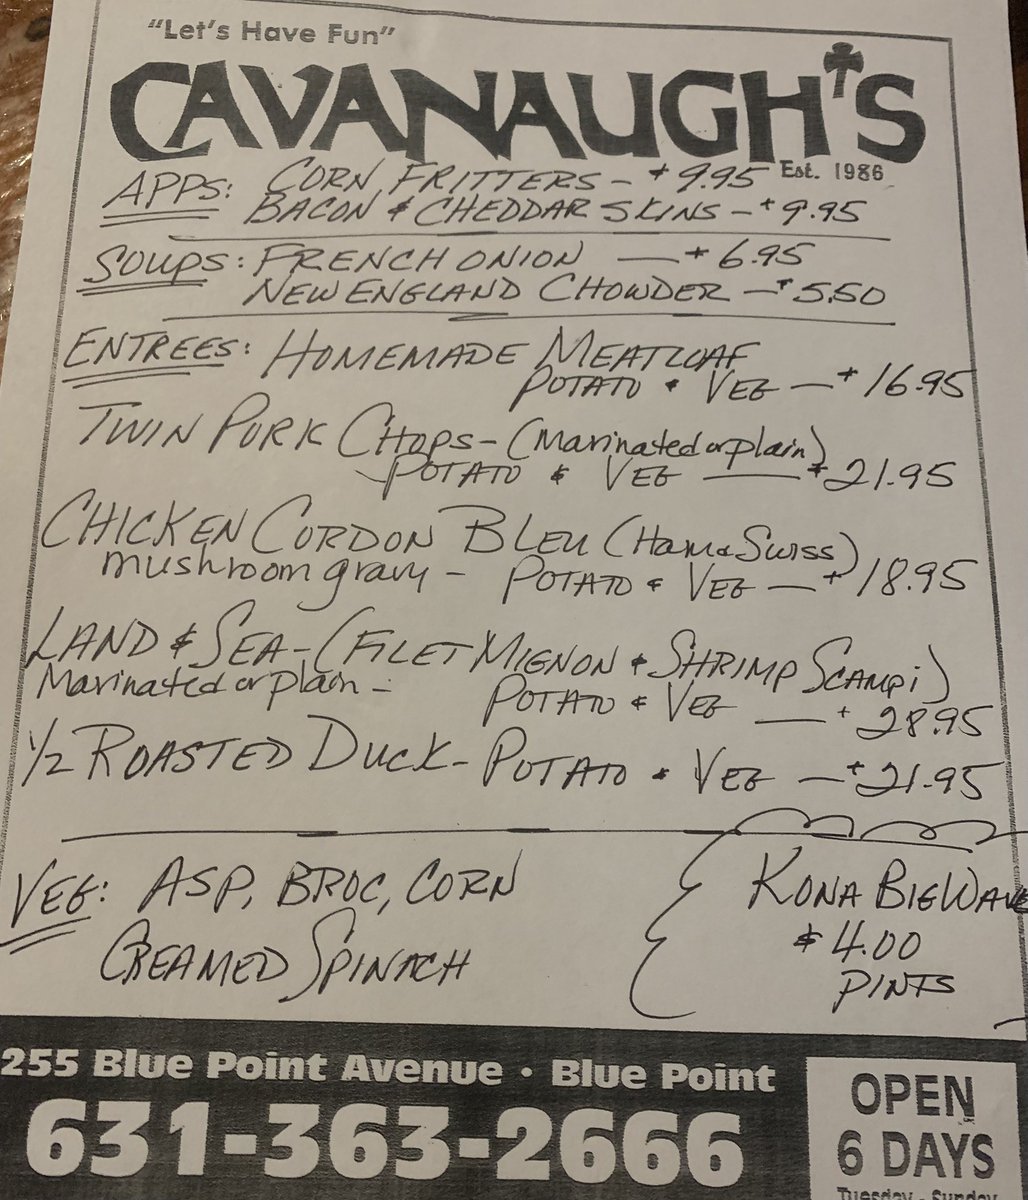 "Let's Have Fun"
CAVANAUGH'S
Est. 1986
APPS: CORN FRITTERS - $9.95
BACON & CHEDDAR SKINS - $9.95
SOUPS: FRENCH ONION — $6.95
NEW ENGLAND CHOWDER - $5.50
ENTREES: HOMEMADE MEATLOAF
POTATO & VEG — $16.95
TWIN PORK CHOPS - (Marinated or plain)
POTATO & VEG — $21.95
CHICKEN CORDON BLEU (Ham & Swiss)
mushroom gravy - POTATO & VEG — $18.95
LAND & SEA - (FILET MIGNON & SHRIMP SCAMPi)
Marinated or plain - POTATO & VEG — $28.95
1/2 ROASTED DUCK - POTATO & VEG — $21.95
VEG: ASP, BROC, CORN
CREAMED SPINACH
KONA BIG WAVE
$4.00
PINTS
255 Blue Point Avenue • Blue Point
631-363-2666
OPEN
6 DAYS
Tuesday - Sunday